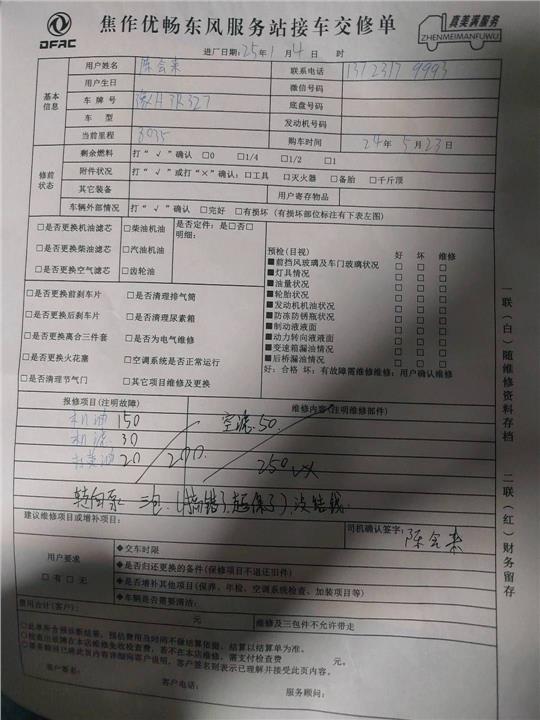 DFAC
焦作优畅东风服务站接车交修单
真美满服务
ZHENMEIMANFUWU
进厂日期:25年1月4日 时
基本信息
用户姓名 陈会来 联系电话
用户生日 微信号码
车牌号 豫H3K327 底盘号码
车型 发动机号码
当前里程 3035 购车时间 24年5月23日
修前状态
剩余燃料 打“√”确认 □0 □1/4 □1/2 □1
附件状况 打“√”或打“×”确认:□工具 □灭火器 □备胎 □千斤顶
其它装备 用户寄存物品
车辆外部情况 打“√”确认 □完好 □有损坏(有损坏部位标注有下表左图)
□是否更换机油滤芯 □柴油机油 是否定件:是□否□
明细:
□是否更换柴油滤芯 □汽油机油
□是否更换空气滤芯 □齿轮油
□是否更换前刹车片 □是否清理排气筒
□是否更换后刹车片 □是否清理尿素箱
□是否更换离合三件套 □是否为电气维修
□是否更换火花塞 □空调系统是否正常运行
□是否清理节气门 □其它项目维修及更换
预检(目视) 好 坏 维修
■前挡风玻璃及车门玻璃状况 □ □ □
■灯具情况 □ □ □
■油量状况 □ □ □
■轮胎状况 □ □ □
■发动机机油状况 □ □ □
■防冻防锈瓶状况 □ □ □
■制动液液面 □ □ □
■动力转向液液面 □ □ □
■变速箱漏油情况 □ □ □
■后桥漏油情况 □ □ □
好:合格 坏:有故障需维修维修:用户确认维修
报修项目(注明故障) 维修内容(注明维修部件)
机油 150 空滤.50.
机滤 30
打黄油 20 200 250
转向泵 三包.(搞错了,超保了),没结钱.
建议维修项目或增补项目: 司机确认签字: 陈会来
用户要求
□有□无
◆交车时限
◆是否归还更换的备件(保修项目不退还旧件)
◆是否增补其他项目(保养、年检、空调系统检查、加装项目等)
◆车辆是否需要清洁:
费用合计(客户): 元 维修及三包件不允许带走
○此单所含预诊断结果、预估费用及时间不做结算依据,结算以结算单为准。
○检查出故障在本店维修免收检查费,若不在本店维修,需支付检查费 元。
○服务顾问已将此页内容详细向客户说明,客户签名则表示已理解并接受此页内容。
客户签名: 客户电话: 服务顾问:
一联(白)随维修资料存档
二联(红)财务留存